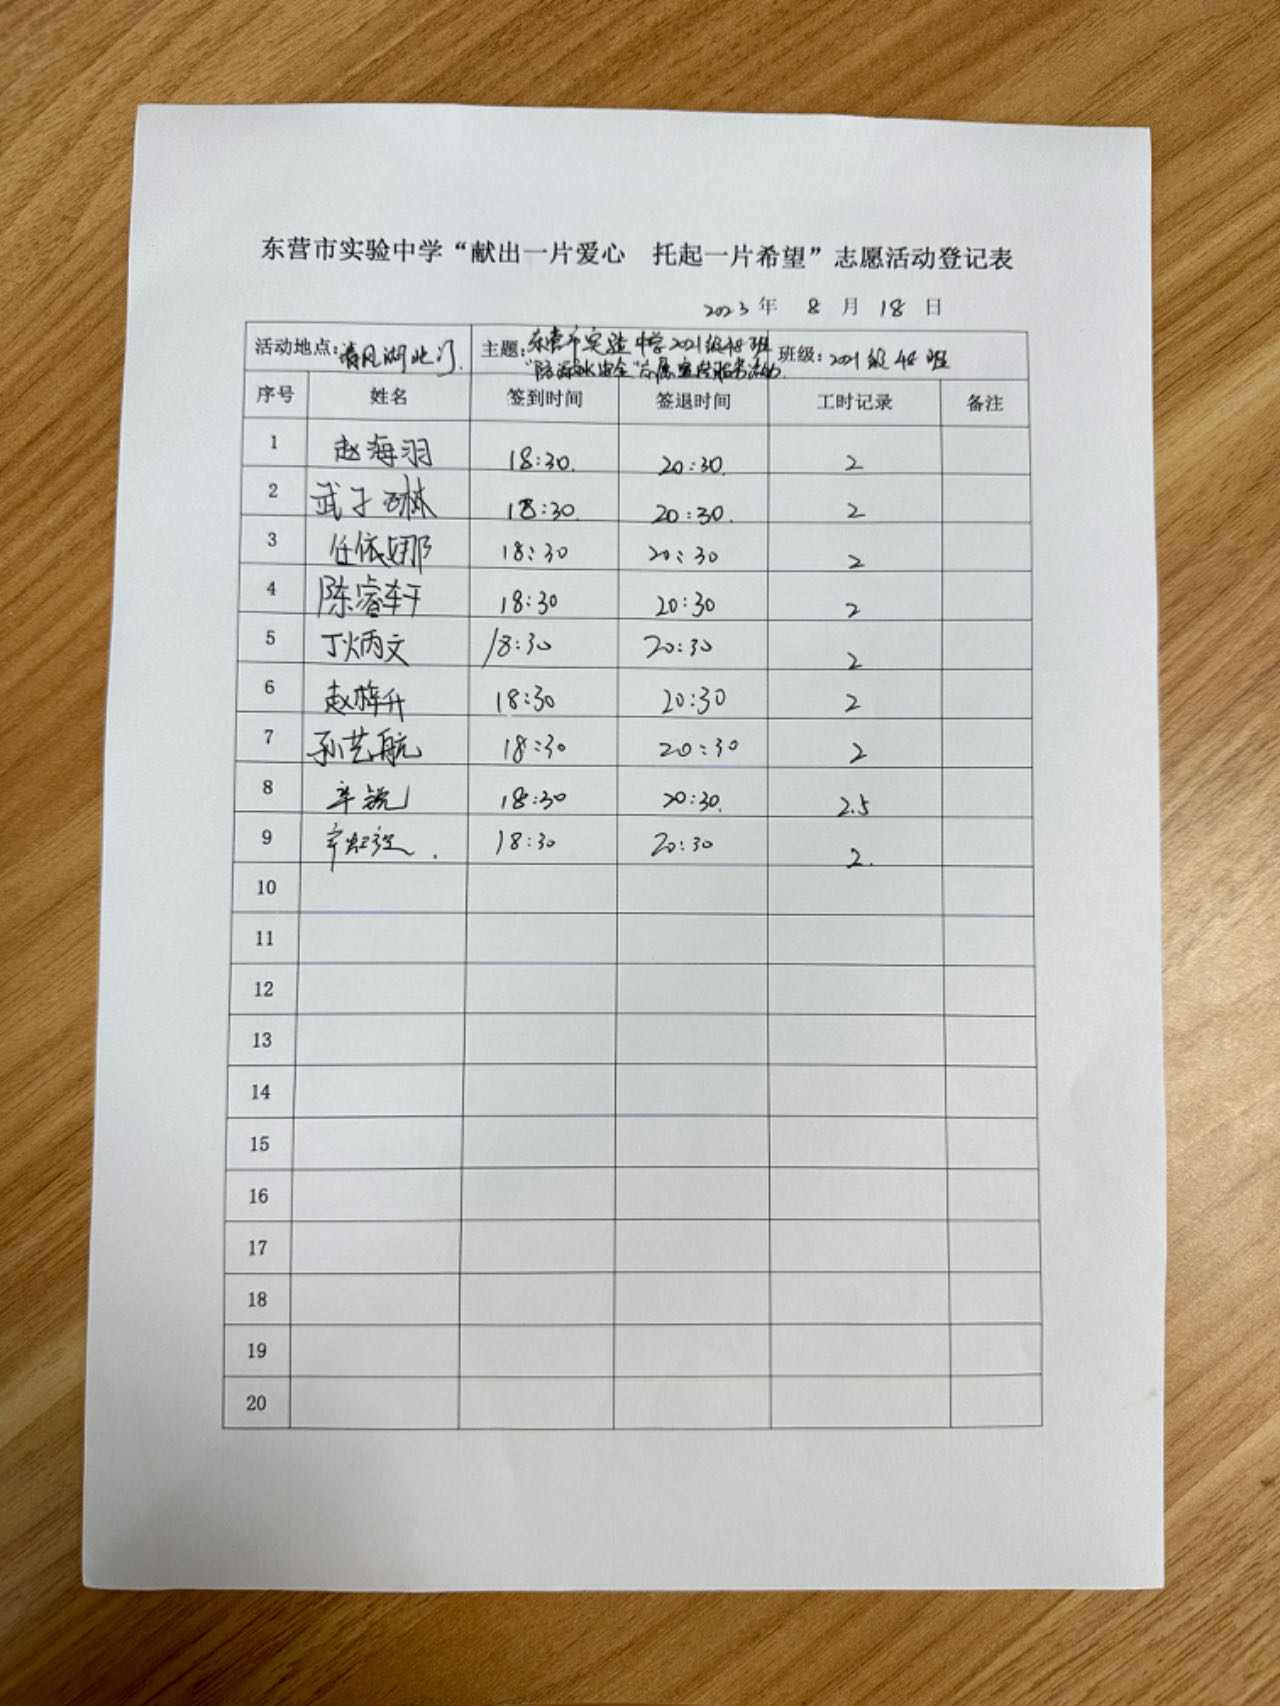 东营市实验中学“献出一片爱心 托起一片希望”志愿活动登记表
2023年 8月18日
活动地点:清风湖北门 主题:东营市实验中学2021级48班 班级:2021级48班
"防溺水安全"志愿宣传服务活动
序号 姓名 签到时间 签退时间 工时记录 备注
1 赵海羽 18:30. 20:30. 2
2 武子琳 18:30. 20:30. 2
3 任依娜 18:30 20:30 2
4 陈睿轩 18:30 20:30 2
5 丁炳文 18:30 20:30 2
6 赵梓升 18:30 20:30 2
7 孙艺航 18:30 20:30 2
8 辛锐 18:30 20:30. 2.5
9 18:30 20:30 2.
10
11
12
13
14
15
16
17
18
19
20